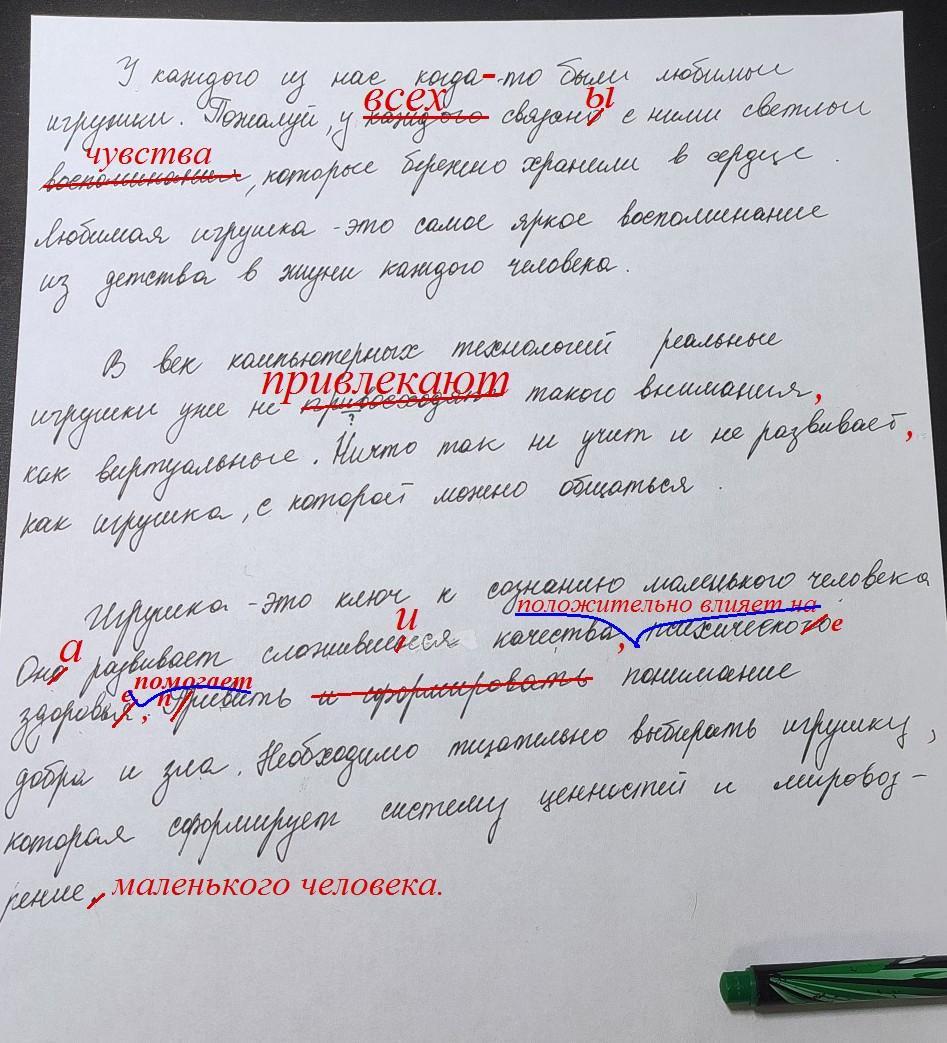 У каждого из нас когда-то были любимые
всех ы
игрушки. Пожалуй, у каждого связано с ними светлые
чувства
воспоминания, которые бережно хранили в сердце.
Любимая игрушка - это самое яркое воспоминание
из детства в жизни каждого человека.
В век компьютерных технологий реальные
привлекают
игрушки уже не превосходят такого внимания,
?
как виртуальные. Ничто так не учит и не развивает,
как игрушка, с которой можно общаться.
Игрушка - это ключ к сознанию маленького человека
а и положительно влияет на
Оно развивает сложившееся качества, психического е
е помогает
п
здоровья, Привить и сформировать понимание
добра и зла. Необходимо тщательно выбирать игрушку,
которая сформирует систему ценностей и мировоз-
рение, маленького человека.